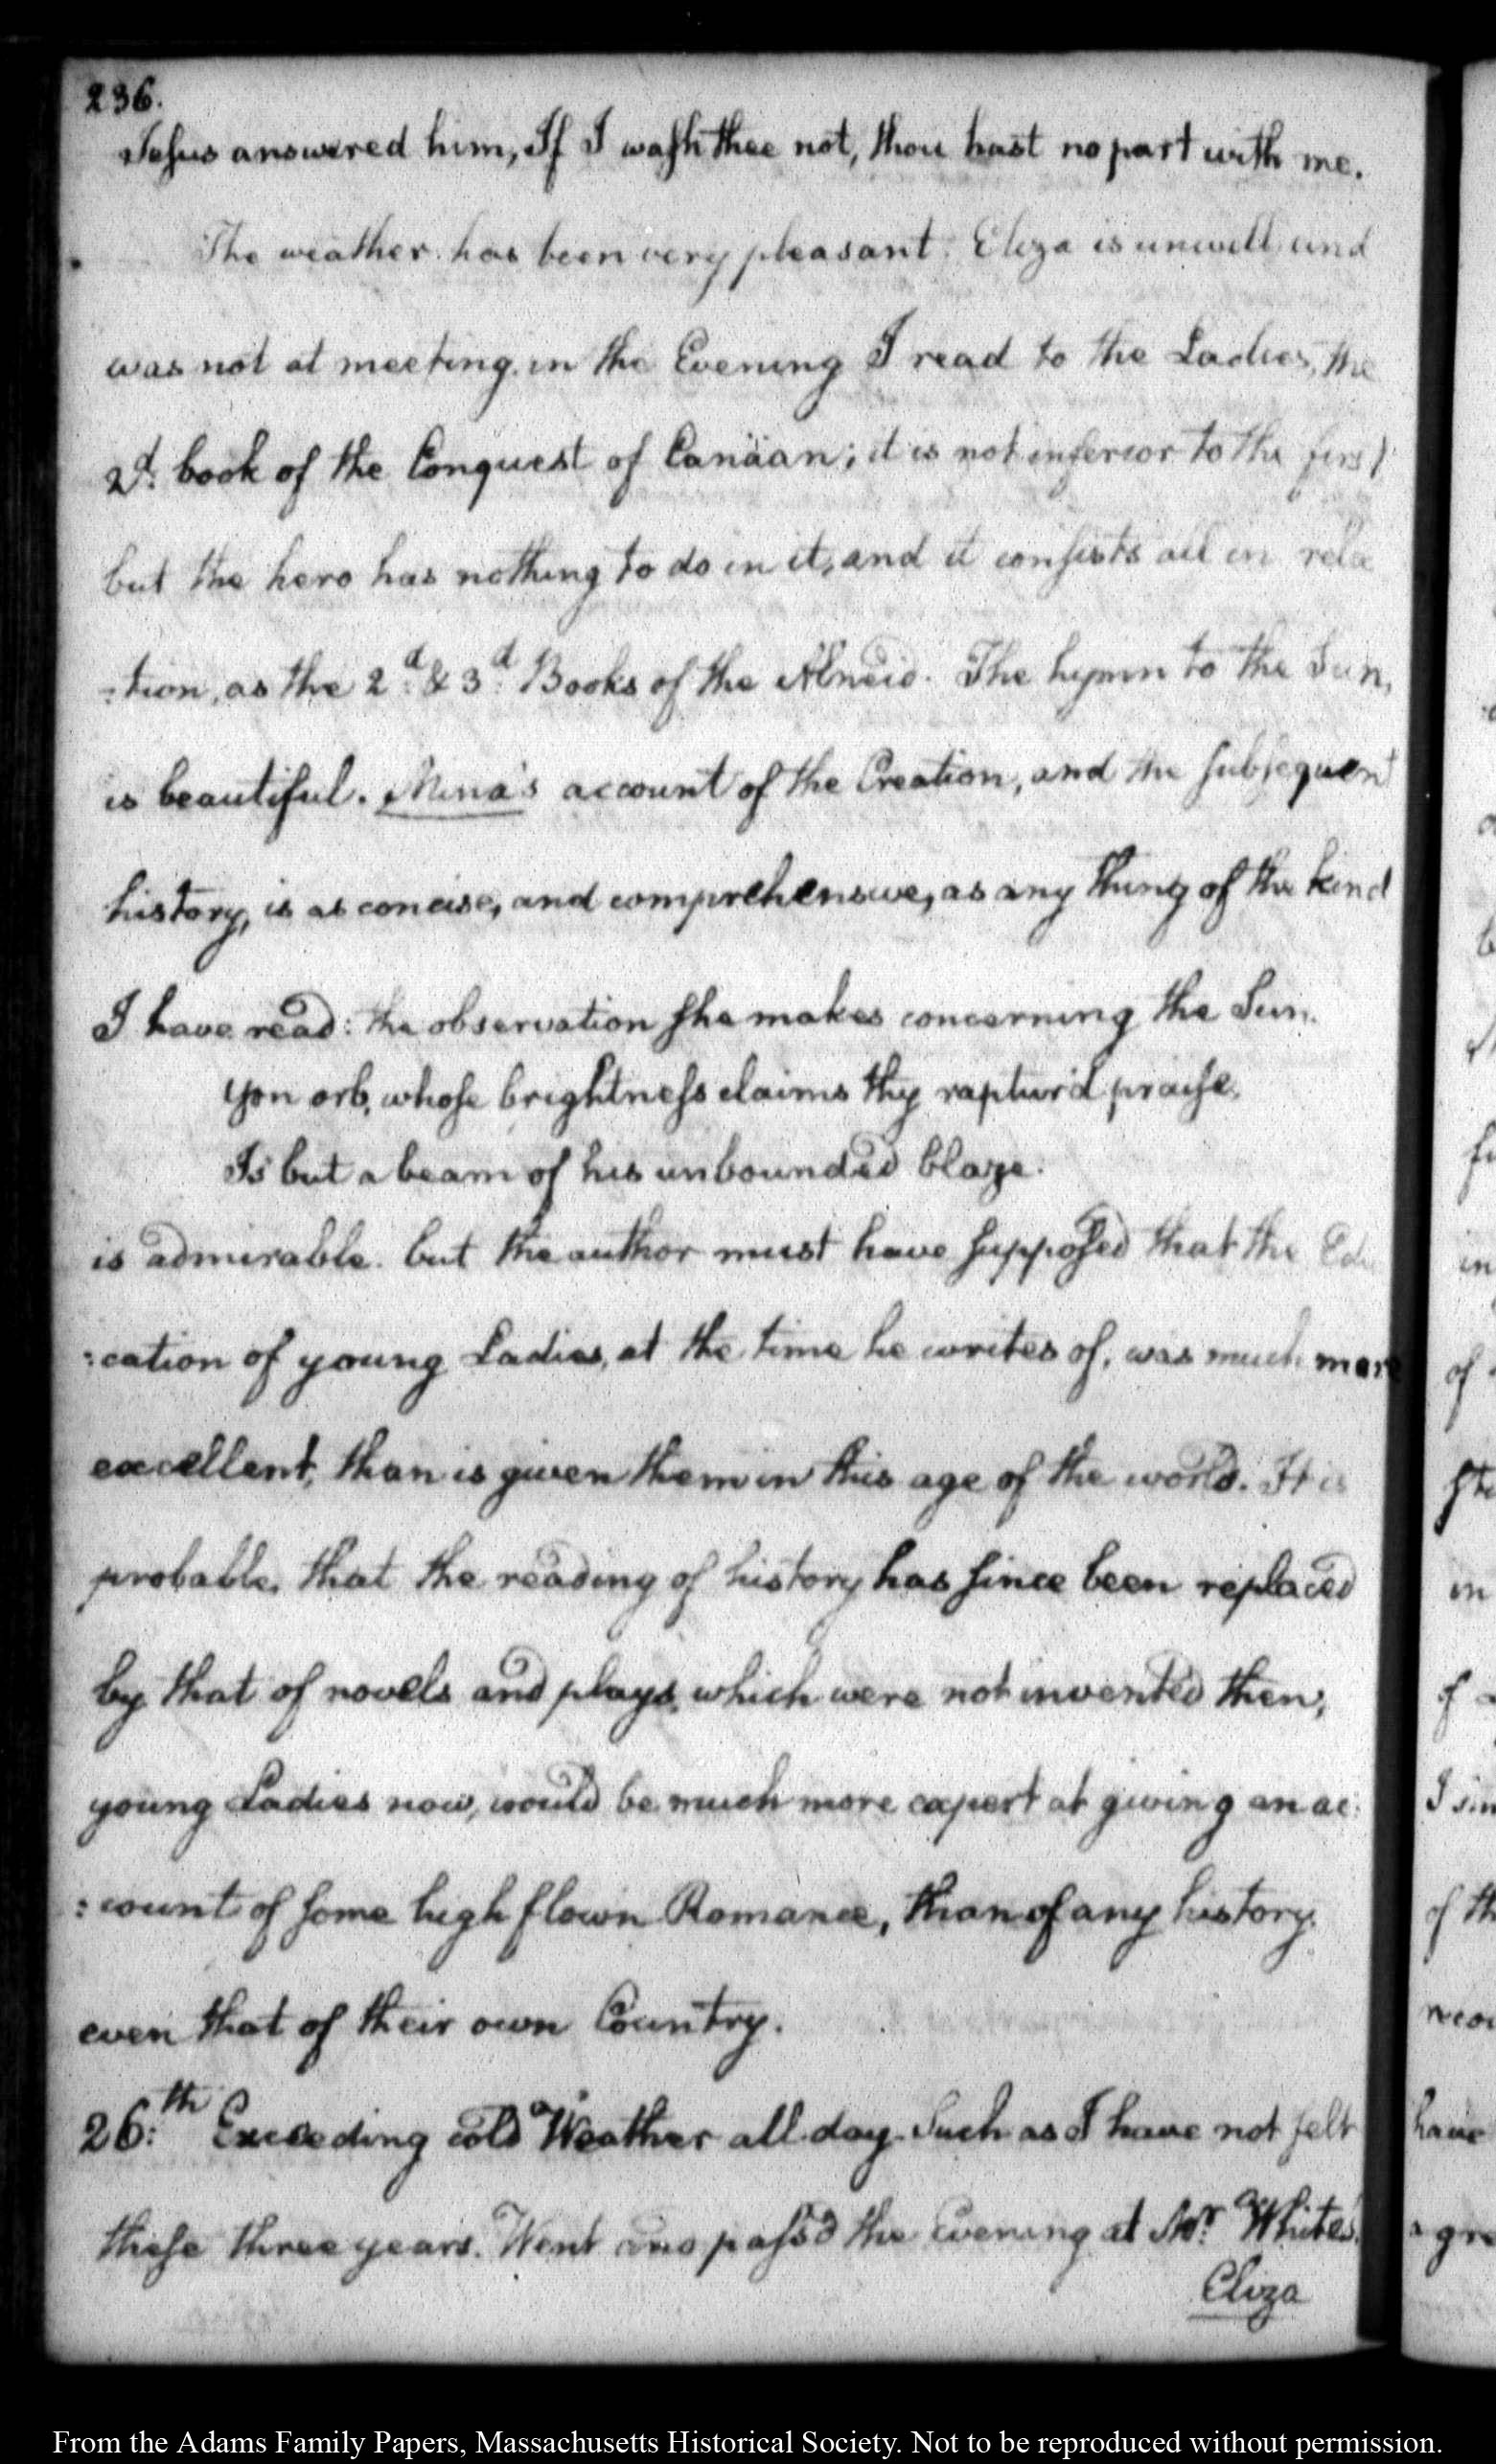 236.
Jesus answered him, If I wash thee not, thou hast no part with me.
The weather has been very pleasant. Eliza is unwell and
was not at meeting. in the Evening I read to the Ladies, the
2d: book of the Conquest of Canäan; it is not inferior to the first
but the hero has nothing to do in it, and it consists all in rela
:tion, as the 2d: & 3d: Books of the Æneid. The hymn to the Sun,
is beautiful. Mina's account of the Creation, and the subsequent
history, is as concise, and comprehensive, as any thing of the kind
I have read: the observation she makes concerning the Sun.
Yon orb, whose brightness claims thy raptur'd praise,
Is but a beam of his unbounded blaze.
is admirable. but the author must have supposed that the Edu
:cation of young Ladies, at the time he writes of, was much more
excellent, than is given them in this age of the world. It is
probable, that the reading of history has since been replaced
by that of novels and plays, which were not invented then,
young Ladies now, would be much more expert at giving an ac:
:count of some high flown Romance, than of any history.
even that of their own Country.
26:th Exceeding cold Weather all day. Such as I have not felt
these three years. Went and pass'd the Evening at Mr. White's.
Eliza
From the Adams Family Papers, Massachusetts Historical Society. Not to be reproduced without permission.